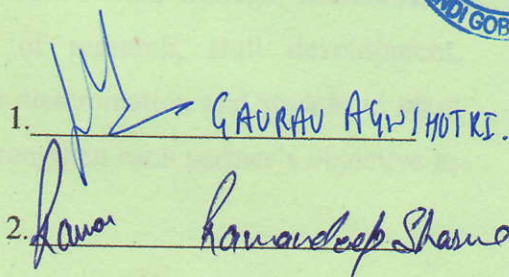 NDI GOB
1. GAURAV AGNIHOTRI.
2. Raman Ramandeep Sharma